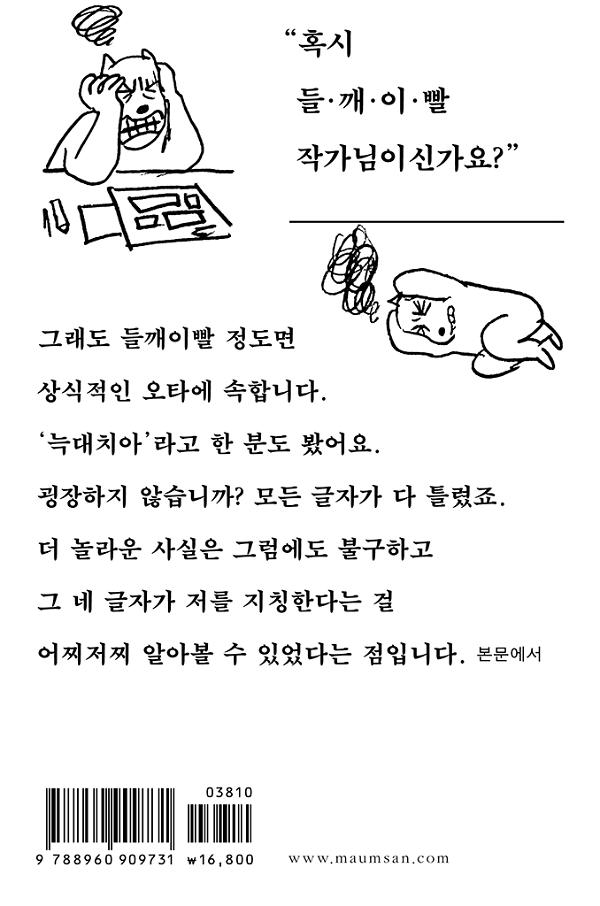 “혹시
들·깨·이·빨
작가님이신가요?”
그래도 들깨이빨 정도면
상식적인 오타에 속합니다.
‘늑대치아’라고 한 분도 봤어요.
굉장하지 않습니까? 모든 글자가 다 틀렸죠.
더 놀라운 사실은 그럼에도 불구하고
그 네 글자가 저를 지칭한다는 걸
어찌저찌 알아볼 수 있었다는 점입니다. 본문에서
03810
9 788960 909731 ₩16,800 www.maumsan.com